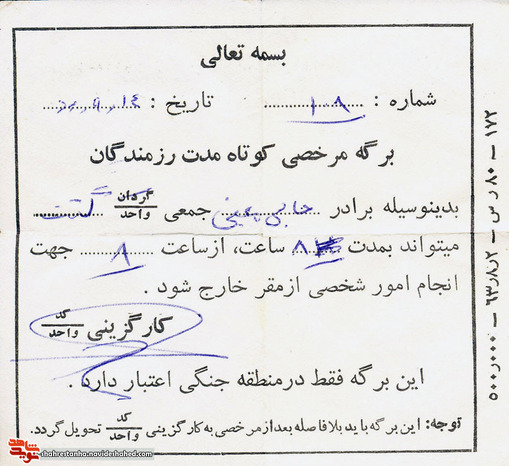 بسمه تعالی
شماره : ۱۰۸ تاریخ :
برگه مرخصی کوتاه مدت رزمندگان
بدینوسیله برادر جمعی گردان واحد گشت
میتواند بمدت ۸ ساعت، ازساعت ۸ جهت
انجام امور شخصی ازمقر خارج شود .
کارگزینی کد واحد
این برگه فقط درمنطقه جنگی اعتبار دارد .
توجه: این برگه باید بلافاصله بعد از مرخصی به کارگزینی کد واحد تحویل گردد.
۱۷۲ — ۸۰ ر س — ۶۳ر۸ر۲ — ۵۰۰ر۰۰۰
shahrestanha.navideshahed.com